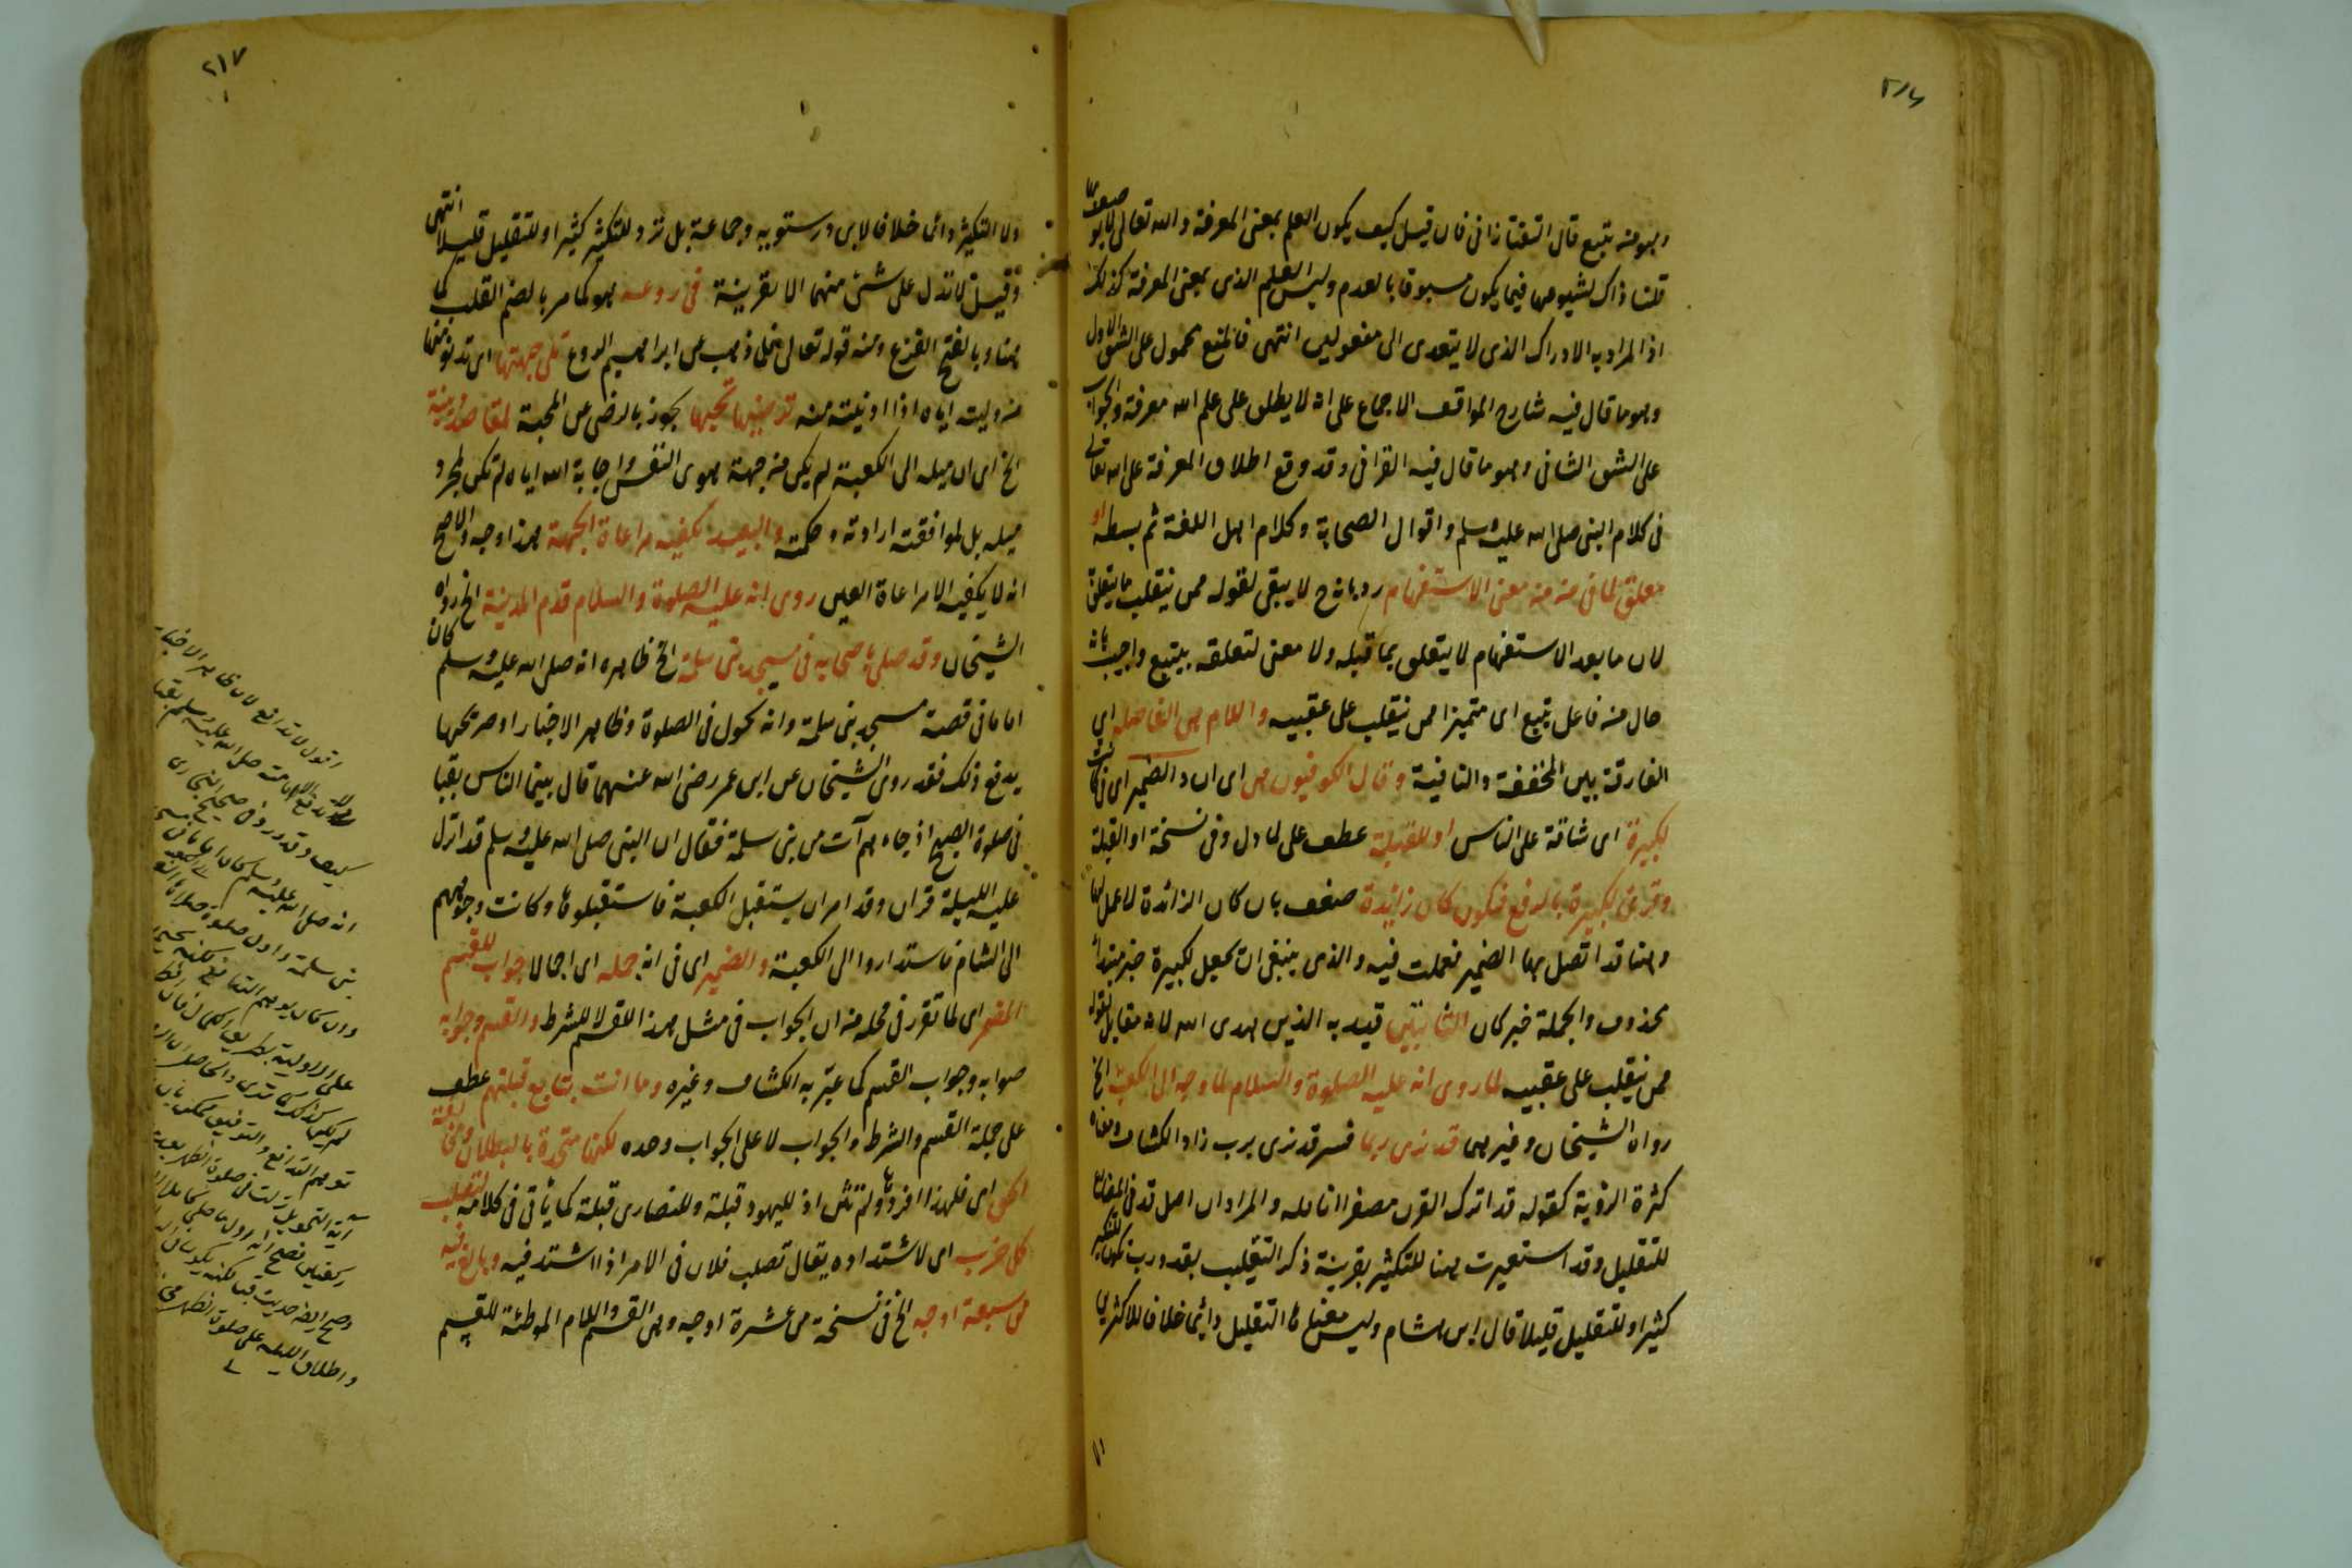 ٢١٦
وبهو منه يتبع قال التفتازانى فان قيل كيف يكون العلم بمعنى المعرفة والله تعالى لا يوصف بها
قلنا ذاك لشيوعها فيما يكون مسبوقا بالعدم وليس العلم الذى بمعنى المعرفة كذلك
اذ المراد به الادراك الذى لا يتعدى الى مفعولين انتهى فالمنع محمول على الشق الاول
وهو ما قال فيه شارح المواقف الاجماع على انه لا يطلق على علم الله معرفة والجواب
على الشق الثانى وهو ما قال فيه القرافى وقد وقع اطلاق المعرفة على الله تعالى
فى كلام النبى صلى الله عليه وسلم واقوال الصحابة وكلام اهل اللغة ثم بسطه او
معلق لما فى منه من معنى الاستفهام رد بانه ح لا يبقى لقوله ممن ينقلب ما يتعلق به
لان ما بعد الاستفهام لا يتعلق بما قبله ولا معنى لتعلقه بيتبع واجيب بانه
حال من فاعل يتبع اى متميزا ممن ينقلب على عقبيه واللام هى الفاصلة اى
الفارقة بين المخففة والنافية وقال الكوفيون هى اى ان والضمير اى فى كانت
لكبيرة اى شاقة على الناس او للقبلة عطف على لما دل وفى نسخة او القبلة
وقرئ لكبيرة بالرفع فتكون كان زائدة ضعف بان كان الزائدة لا عمل لها
وهنا قد اتصل بها الضمير فعملت فيه والذى ينبغى ان يجعل لكبيرة خبر مبتدأ
محذوف والجملة خبر كان الثابتين قيد به الذين هدى الله لانه مقابل لقوله
ممن ينقلب على عقبيه لما روى انه عليه الصلوة والسلام لما وجه الى الكعبة الخ
رواه الشيخان وغيرهما قد نرى ربما فسر قد نرى برب زاد الكشاف ومعناه
كثرة الرؤية كقوله قد اترك القرن مصفرا انامله والمراد ان اصل قد فى المضارع
للتقليل وقد استعيرت هنا للتكثير بقرينة ذكر التقلب بقد ورب تكون للتكثير
كثيرا وللتقليل قليلا قال ابن هشام وليس معناها التقليل دائما خلافا للاكثرين
٢١٧
ولا التكثير دائما خلافا لابن درستويه وجماعة بل ترد للتكثير كثيرا وللتقليل قليلا انتهى
وقيل لا تدل على شئ منهما الا بقرينة فى روعه هو كما مر بالضم القلب كما
هنا وبالفتح الفزع ومنه قوله تعالى فلما ذهب عن ابراهيم الروع تلى جهتها اى تدنو منها
من وليته اياه اذا ادنيته منه ترضيها تحبها يجوز بالرضى عن المحبة لمقاصد دينية
الخ اى ان ميله الى الكعبة لم يكن من جهة هوى النفس واجابة الله اياه لم تكن لمجرد
ميله بل لموافقته ارادته وحكمته والبعيد تكفيه مراعاة الجهة هذا وجه والاصح
انه لا يكفيه الا مراعاة العين روى انه عليه الصلوة والسلام قدم المدينة الخ رواه
الشيخان وقد صلى باصحابه فى مسجد بنى سلمة الخ ظاهره انه صلى الله عليه وسلم كان
اماما فى قصة مسجد بنى سلمة وانه تحول فى الصلوة وظاهر الاخبار او صريحها
يدفع ذلك فقد روى الشيخان عن ابن عمر رضى الله عنهما قال بينما الناس بقبا
فى صلوة الصبح اذ جاءهم آت من بنى سلمة فقال ان النبى صلى الله عليه وسلم قد انزل
عليه الليلة قران وقد امر ان يستقبل الكعبة فاستقبلوها وكانت وجوههم
الى الشام فاستداروا الى الكعبة والضمير اى فى انه جمله اى اجمالا جواب للقسم
المضمر اى لما تقرر فى محله من ان الجواب فى مثل هذا للقسم لا للشرط والقسم وجوابه
صوابه وجواب القسم كما عبّر به الكشاف وغيره وما انت بتابع قبلتهم عطف
على جملة القسم والشرط والجواب لا على الجواب وحده لكنها متحدة بالبطلان ومخالفة
الحق اى فلهذا افردها ولم تثن اذ لليهود قبلة وللنصارى قبلة كما يأتى فى كلامه لتصلب
كل حزب اى لاشتداده يقال تصلب فلان فى الامر اذا اشتد فيه وبالغ فيه
من سبعة اوجه الخ فى نسخة من عشرة اوجه وهى القسم واللام الموطئة للقسم
اقول لا تدافع لان ظاهر الاخبار
كيف وقد ورد فى صحيح البخارى
انه صلى الله عليه وسلم كان اماما فى
بنى سلمة واول صلوة صلاها
توهم التدافع والتوفيق ممكن بان
آية التحويل نزلت فى صلوة الظهر بعد
واطلاق الليلة على صلوة الظهر